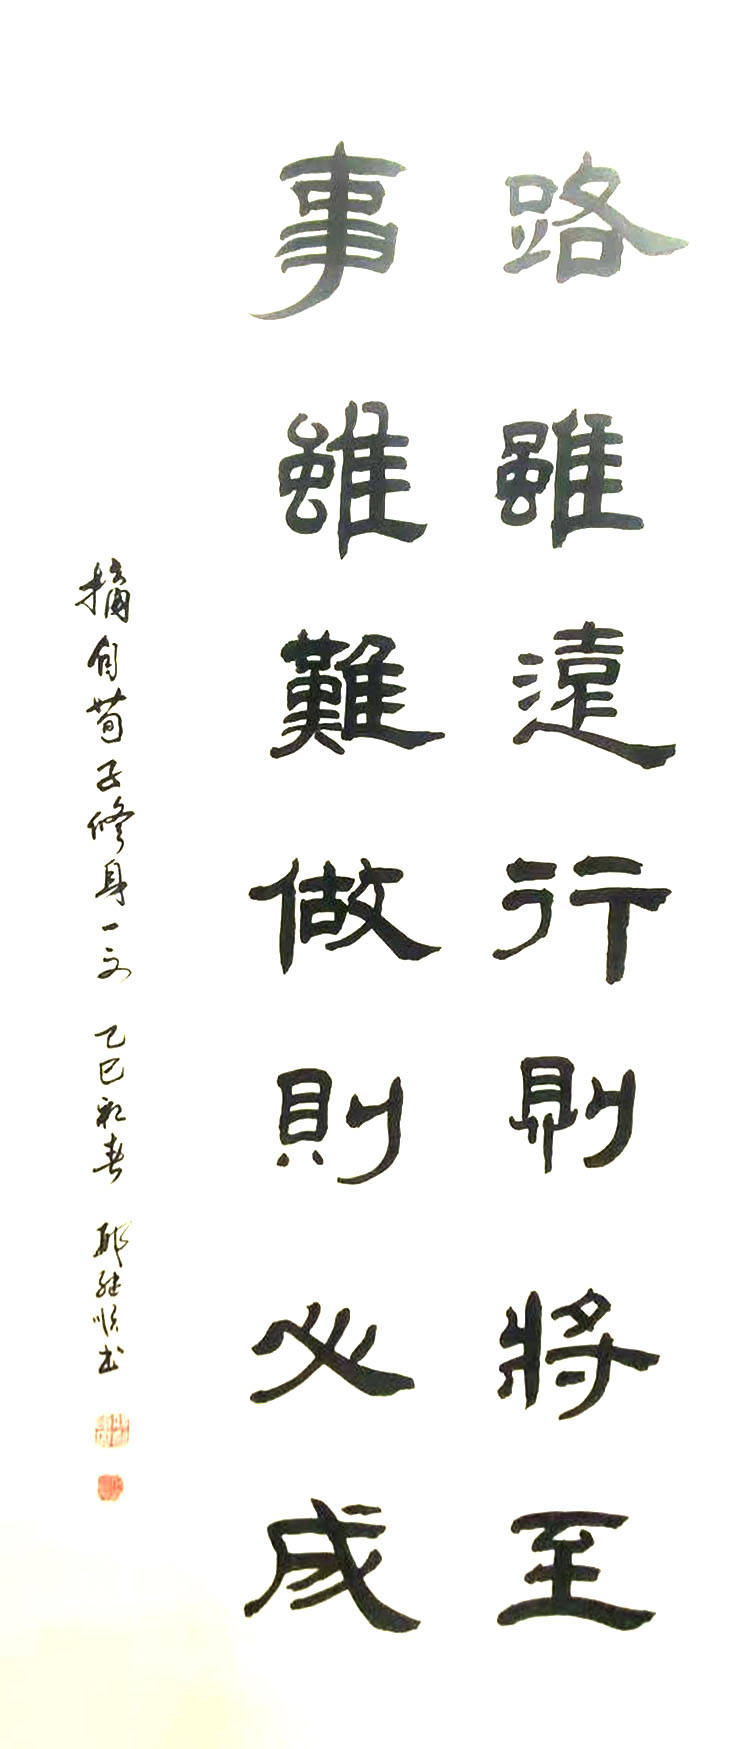 路雖遠行則將至
事雖難做則必成
摘自荀子修身一文 乙巳初春 邢继顺书